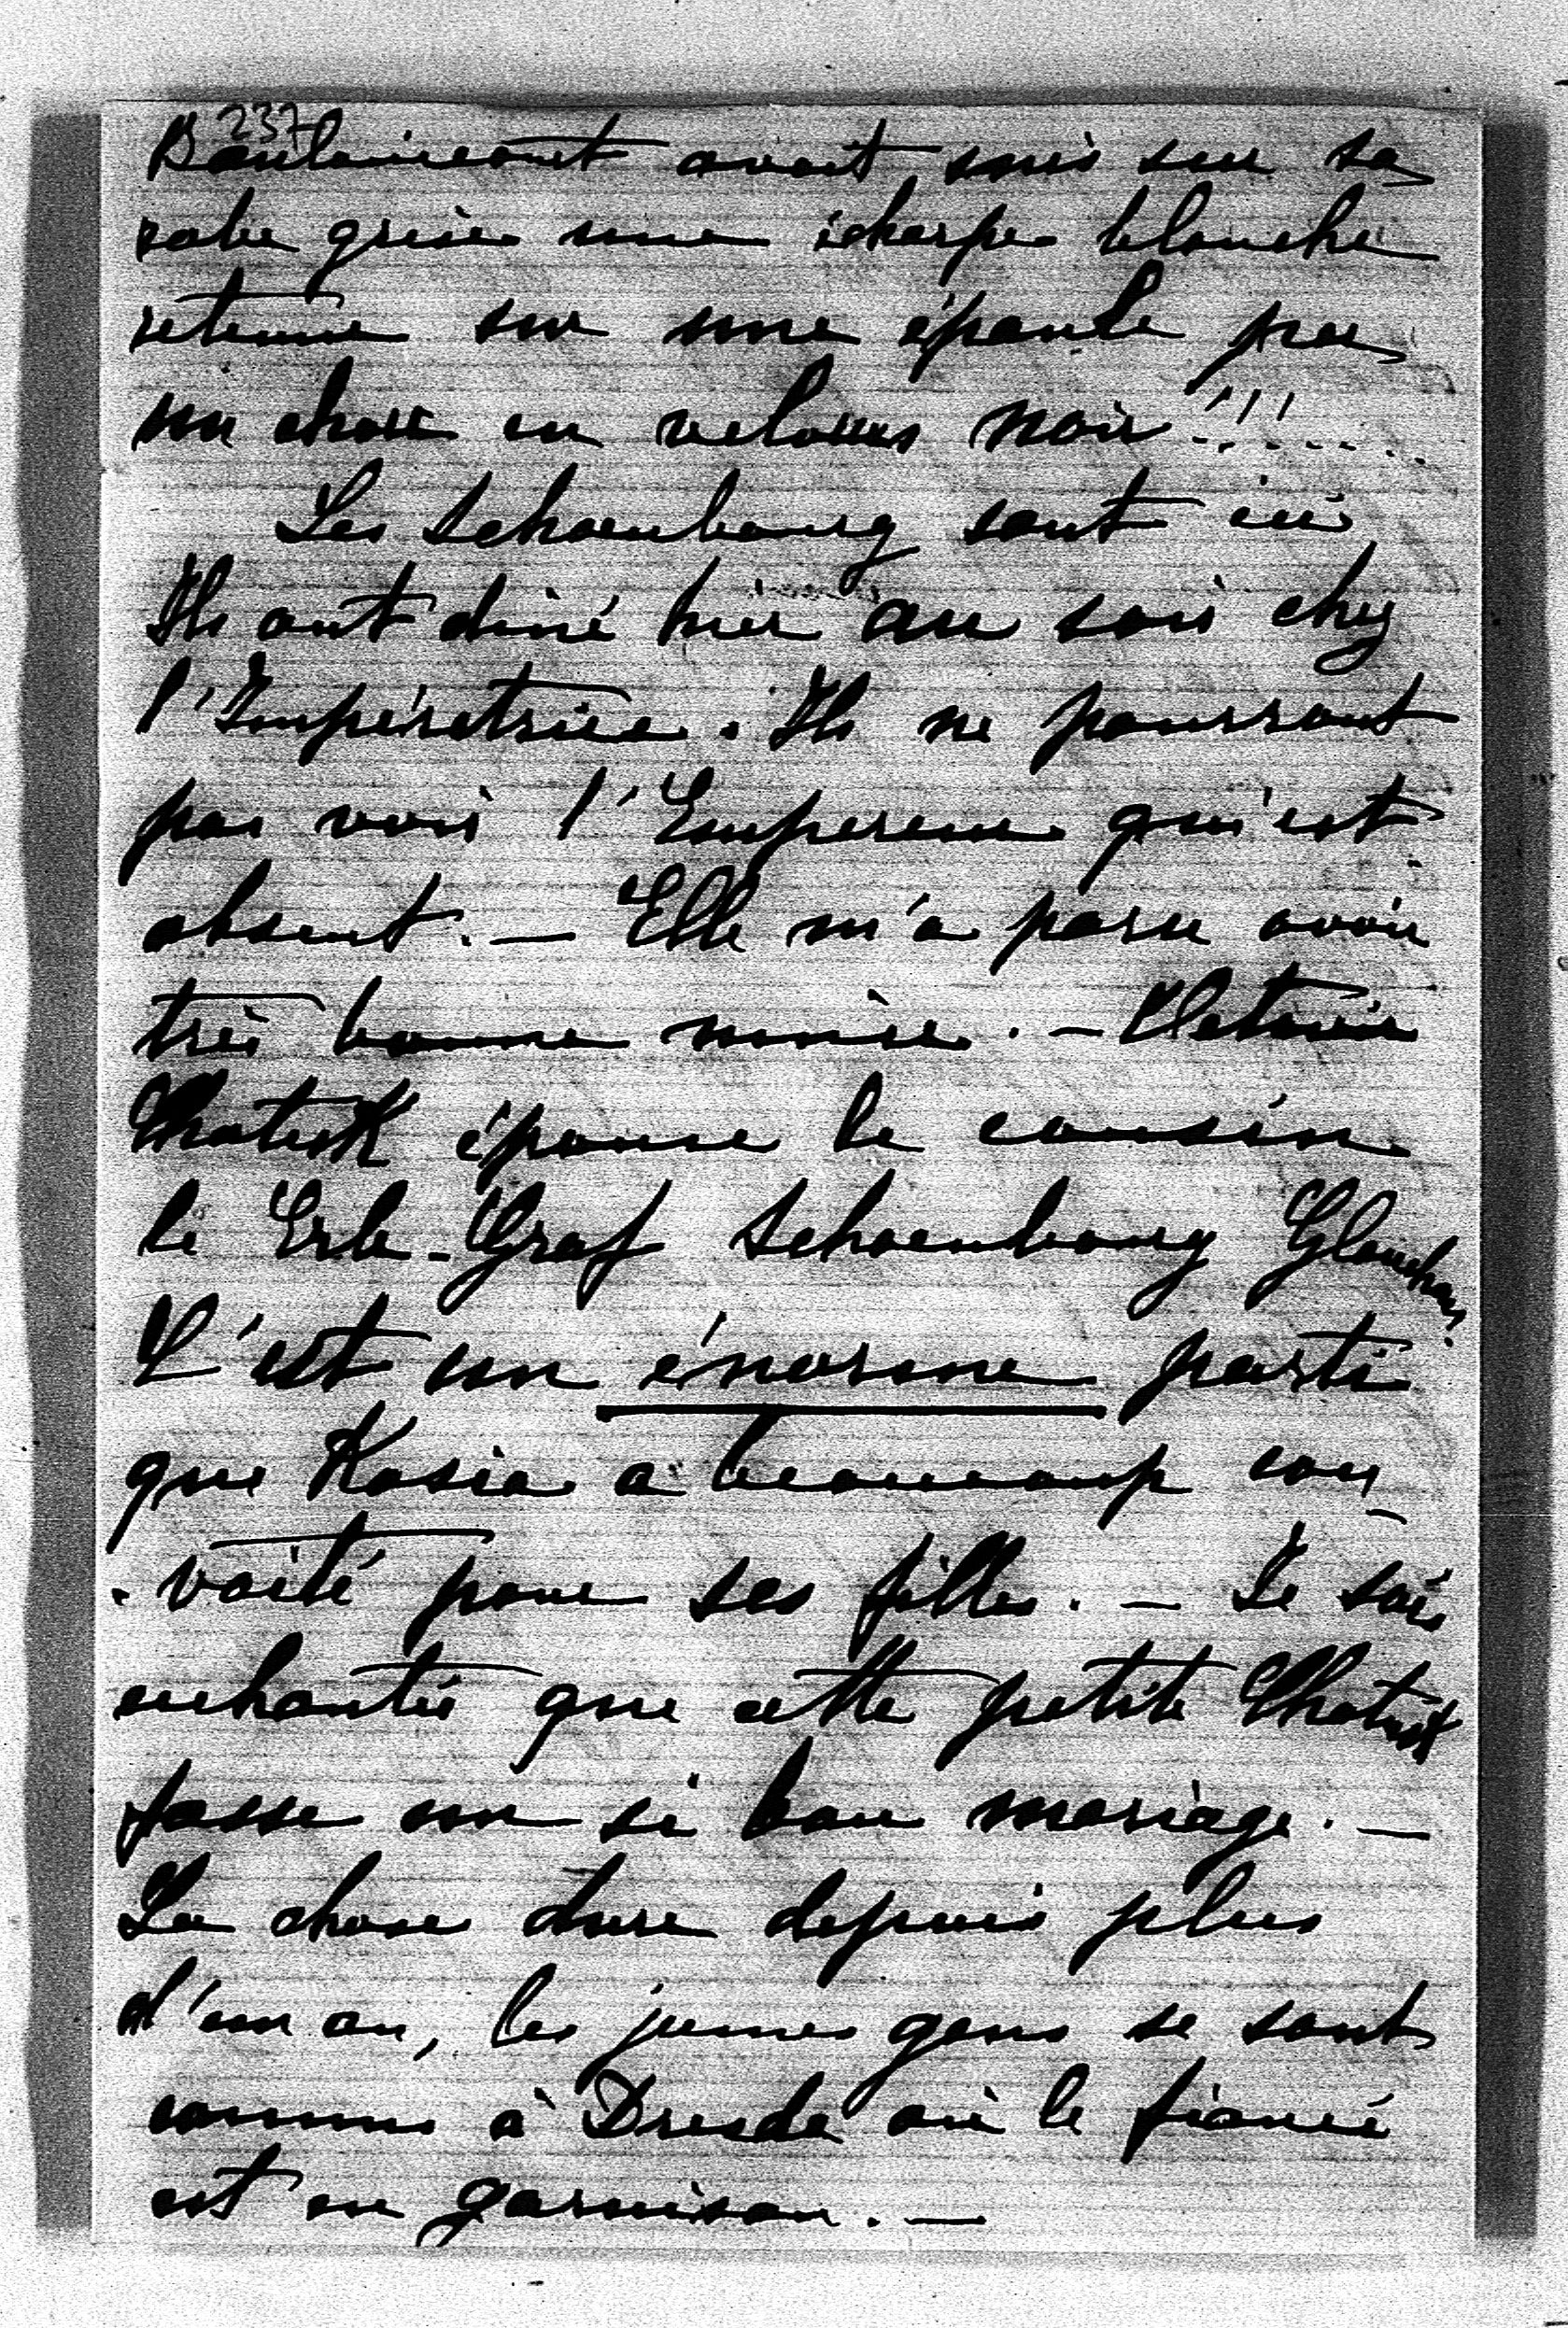 237
Beaulaincourt avait mis sur sa
robe grise une écharpe blanche
retenue sur une épaule par
un choux en velours noir !!!...
Les Schoenbourg sont ici
Ils ont diné hier au soir chez
l'Impératrice. Ils ne pourront
pas voir l'Empereur qui est
absent. — Elle m'a paru avoir
très bonne mine. —
Chotek épouse le cousin
le Erb-Graf Schoenbourg Glauchau.
C'est un énorme parti
que Kasia a beaucoup con-
-voité pour ses filles. — Je suis
enchantée que cette petite Chotek
fasse un si bon mariage. —
La chose dure depuis plus
d'un an, les jeunes gens se sont
connus à Dresde où le fiancé
est en garnison. —